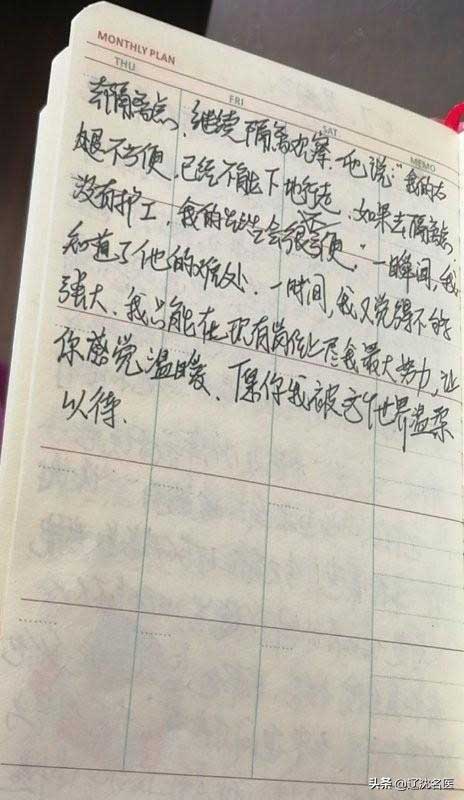 MONTHLY PLAN
THU FRI SAT MEMO
去隔离点，继续隔离观察，他说："我的右
腿不方便，已经不能下地行走，如果去隔离点，
没有护工，我的生活会很不方便。"一瞬间，我
知道了他的难处，一时间，我又觉得不够
强大，我只能在现有岗位上尽我最大努力，让
你感觉温暖，愿你我被这个世界温柔
以待.
头条 @辽沈名医